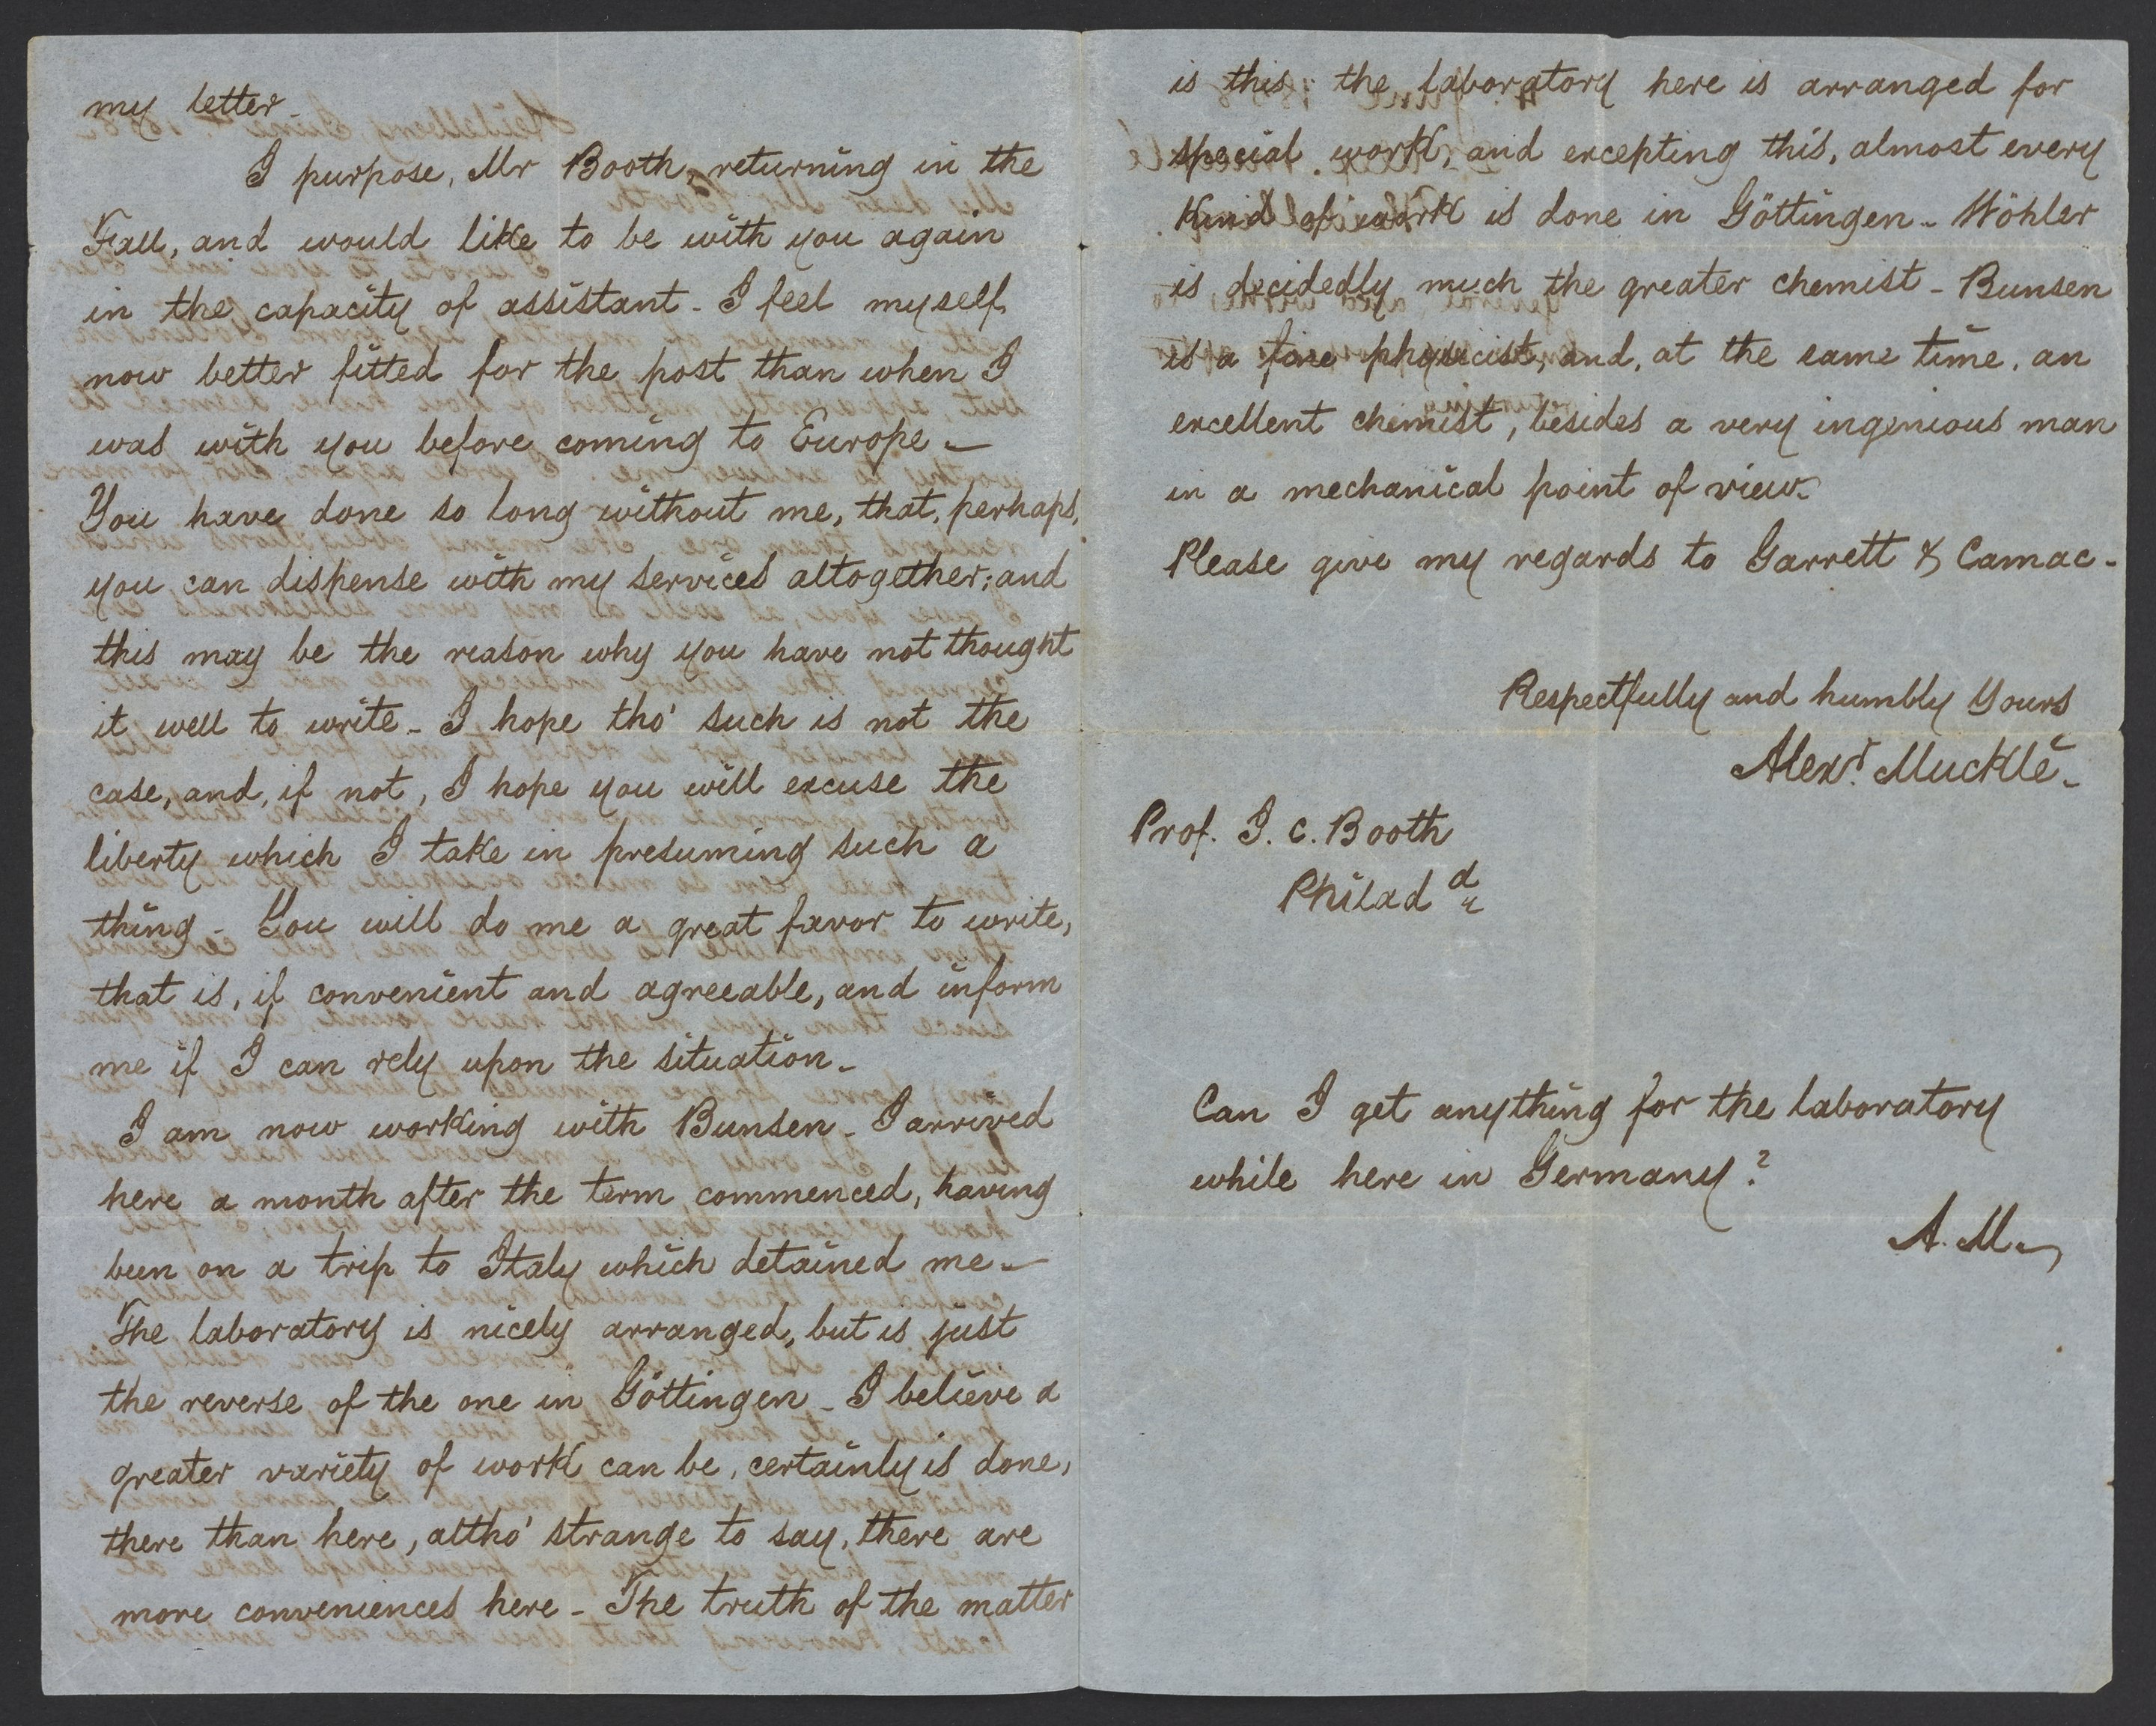 my letter -
I purpose, Mr Booth, returning in the
Fall, and would like to be with you again
in the capacity of assistant - I feel myself
now better fitted for the post than when I
was with you before coming to Europe -
You have done so long without me, that, perhaps,
you can dispense with my services altogether; and
this may be the reason why you have not thought
it well to write - I hope tho' such is not the
case, and, if not, I hope you will excuse the
liberty which I take in presuming such a
thing - You will do me a great favor to write,
that is, if convenient and agreeable, and inform
me if I can rely upon the situation -
I am now working with Bunsen - I arrived
here a month after the term commenced, having
been on a trip to Italy which detained me -
The laboratory is nicely arranged, but is just
the reverse of the one in Göttingen - I believe a
greater variety of work can be, certainly is done,
there than here, altho' strange to say, there are
more conveniences here - The truth of the matter
is this: the laboratory here is arranged for
special work, and excepting this, almost every
kind of work is done in Göttingen - Wöhler
is decidedly much the greater chemist - Bunsen
is a fine physicist, and, at the same time, an
excellent chemist, besides a very ingenious man
in a mechanical point of view -
Please give my regards to Garrett & Camac -
Respectfully and humbly Yours
Alexr. Mucklé -
Prof. J. C. Booth
Philada
Can I get anything for the laboratory
while here in Germany?
A. M.